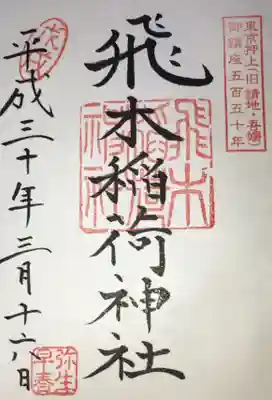 東京押上(旧 請地・吾嬬)
御鎮座五百五十年
飛木稲荷神社
飛木
稲荷
神社
平成三十年三月十六日
弥生
早春